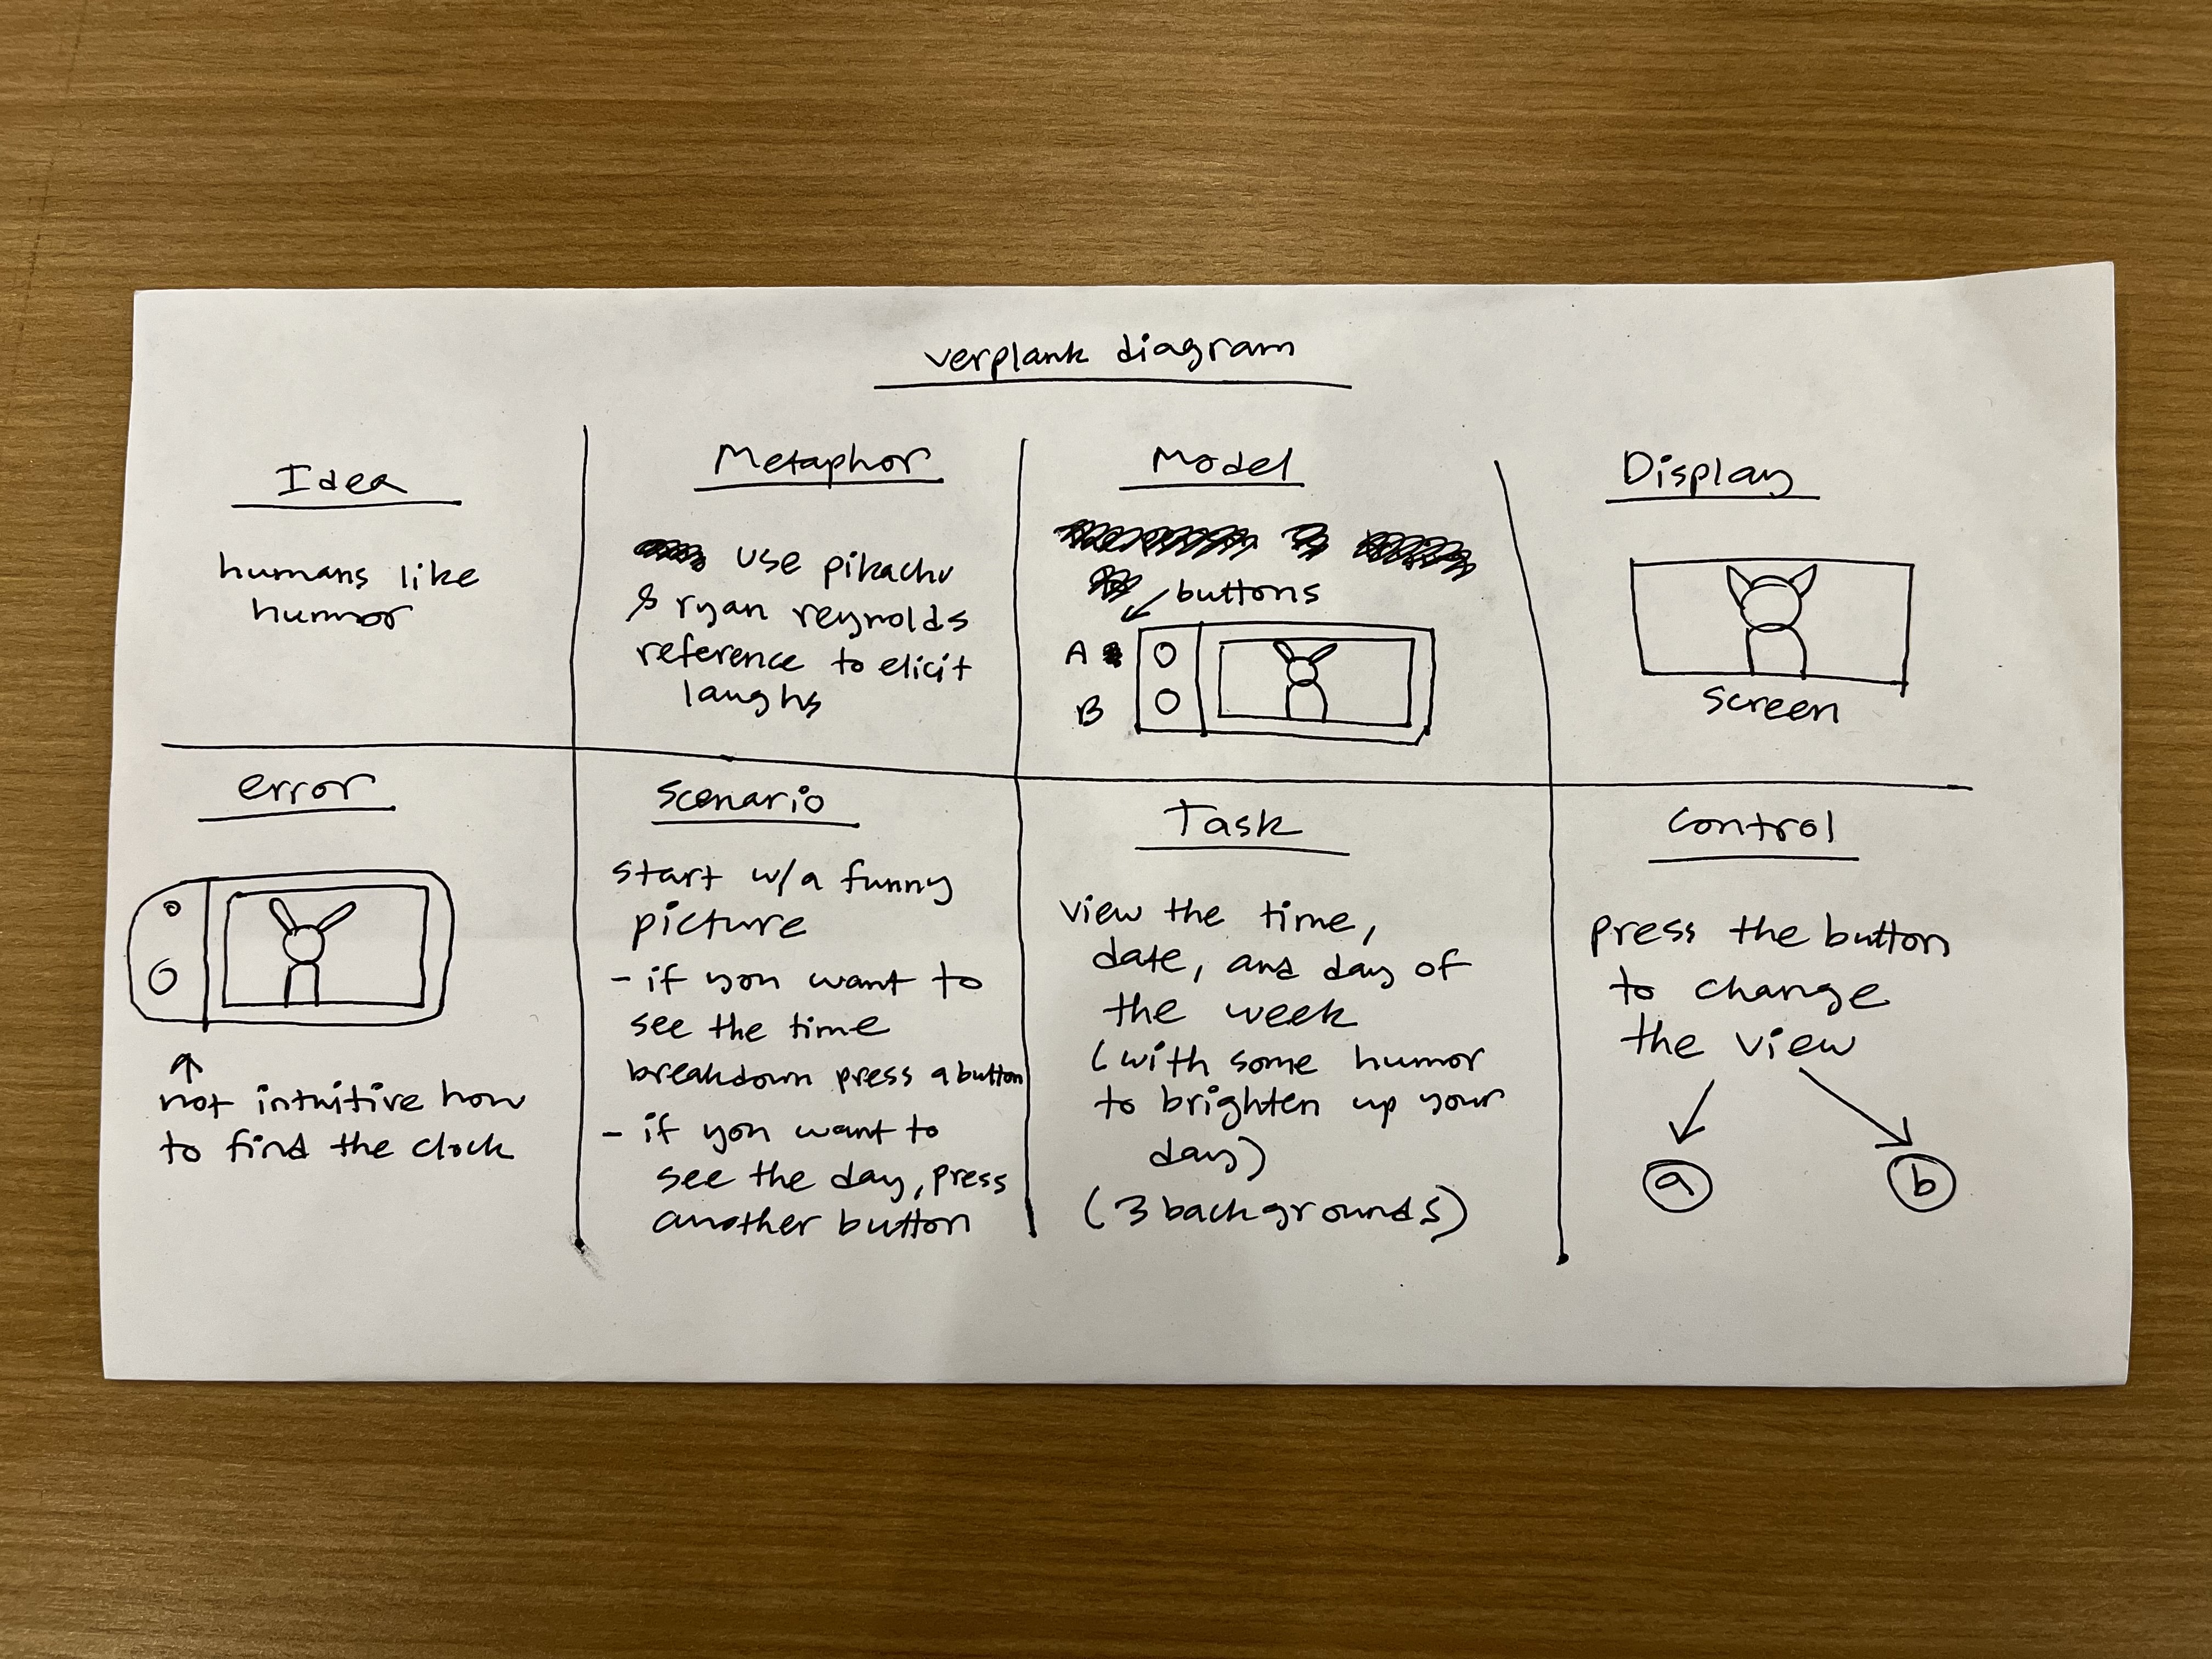 verplank diagram
Idea
humans like
humor
Metaphor
use pikachu
& ryan reynolds
reference to elicit
laughs
Model
buttons
A
B
Display
screen
error
not intuitive how
to find the clock
Scenario
start w/a funny
picture
- if you want to
see the time
breakdown press a button
- if you want to
see the day, press
another button
Task
view the time,
date, and day of
the week
(with some humor
to brighten up your
day)
(3 backgrounds)
control
press the button
to change
the view
a
b